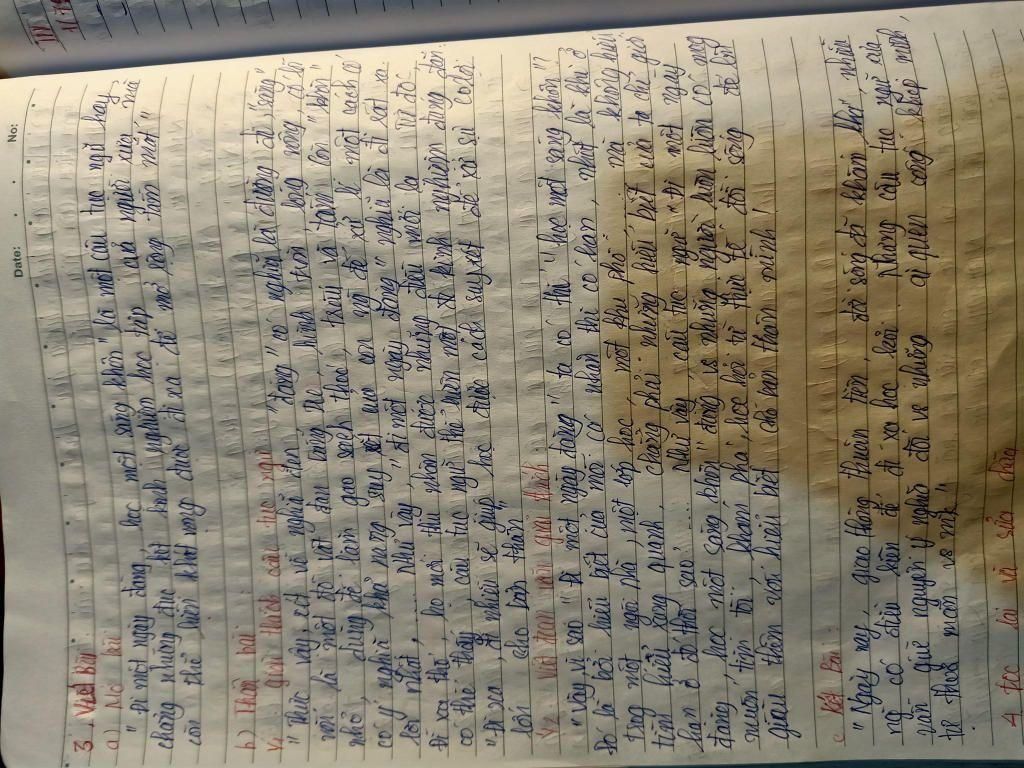 Date: No:
3. Viết bài
a) Mở bài
" Đi một ngày đàng, học một sàng khôn" là một câu tục ngữ hay
chẳng những đúc kết kinh nghiệm học tập của người xưa mà
còn thể hiện khát vọng được đi ra để mở rộng tầm mắt"
b) Thân bài
V1 giải thích câu tục ngữ
" Thực vậy, xét về nghĩa đen "đàng" có nghĩa là đường đi, "sàng"
nói là một đồ vật đan bằng tre, hình tròn, lòng nông, có lỗ
nhỏ, dùng để làm gạo sạch thóc, trấu và tấm còn "khôn"
có ý nghĩa khả năng suy xét của con ng để xử lí một cách có
lợi nhất, ... Như vậy " đi một ngày đàng" nghĩa là đi xa
đi xa thì, họ mới thu nhận được những điều mới lạ. Từ đó
có thể thấy câu tục ngữ thể hiện một kinh nghiệm đúng đắn:
"Đi xa, đi nhiều sẽ giúp học được cách suy xét để xử sự có lợi
hơn cho bản thân"
" Vậy vì sao " Đi một ngày đàng" ta có thể "học một sàng khôn"?
Đó là bởi hiểu biết của mỗi cá nhân thì có hạn, nhất là khi ở
trong một ngôi nhà, một lớp học, một khu phố ... mà không hiểu
tìm hiểu xung quanh. chẳng phải những hiểu biết của ta chỉ giới
hạn ở đó thôi sao! .... Như vậy câu tục ngữ " đi một ngày
đàng, học một sàng khôn" đúng vs những người luôn luôn có mong
muốn tìm tòi, khám phá, học hỏi từ thực tế đời sống để bồi
giàu thêm vốn hiểu biết cho mở thân mình!
c. Kết bài:
" Ngày nay, giao thông thuận tiện, đời sống đã khấm khá, nhiều
ng có điều kiện để đi xa học hỏi. Nhưng câu tục ngữ ấy
vẫn giữ nguyên ý nghĩa đối vs những ai quen công khép mình,
4 đọc lại và sửa chữa